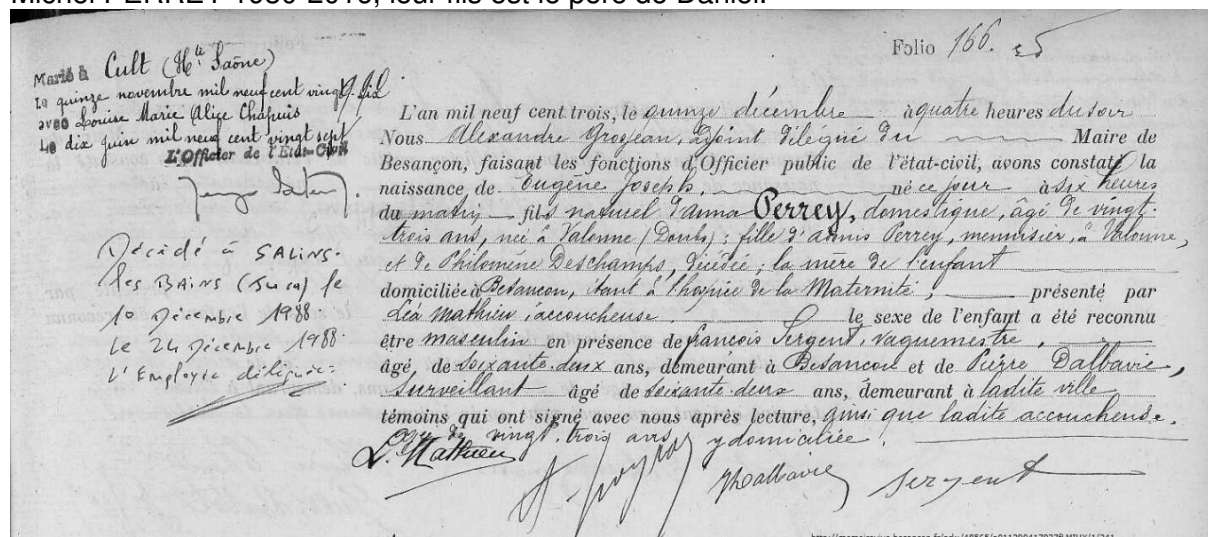 Michel PERREY 1930-2010, leur fils est le père de Daniel.
Folio 166.
Marié à Cult (Hte Saône)
Le quinze novembre mil neuf cent vingt six
avec Louise Marie Alice Chapuis
Le dix juin mil neuf cent vingt sept
L'Officier de l'Etat-Civil
Décédé à SALINS-
les BAINS (Jura) le
10 Décembre 1988
Le 24 Décembre 1988.
L'Employée déléguée=
L'an mil neuf cent trois, le quinze décembre à quatre heures du soir
Nous Alexandre Grosjean, adjoint délégué du Maire de
Besançon, faisant les fonctions d'Officier public de l'état-civil, avons constaté la
naissance de Eugène Joseph, né ce jour à six heures
du matin fils naturel d'Anna Perrey, domestique, âgé de vingt-
trois ans, née à Valonne (Doubs); fille d'Annis Perrey, menuisier, à Valonne,
et de Philomène Deschamps, décédée; la mère de l'enfant
domiciliée à Besançon, étant à l'hospice de la Maternité, présenté par
Léa Mathieu, accoucheuse. le sexe de l'enfant a été reconnu
être masculin en présence de françois Sergent, vaguemestre,
âgé, de soixante-deux ans, demeurant à Besançon et de Pierre Dalbavie,
surveillant âgé de soixante-deux ans, demeurant à ladite ville
témoins qui ont signé avec nous après lecture, ainsi que ladite accoucheuse.
âgée de vingt-trois ans y domiciliée.
L. Mathieu
Dalbavie
Sergent